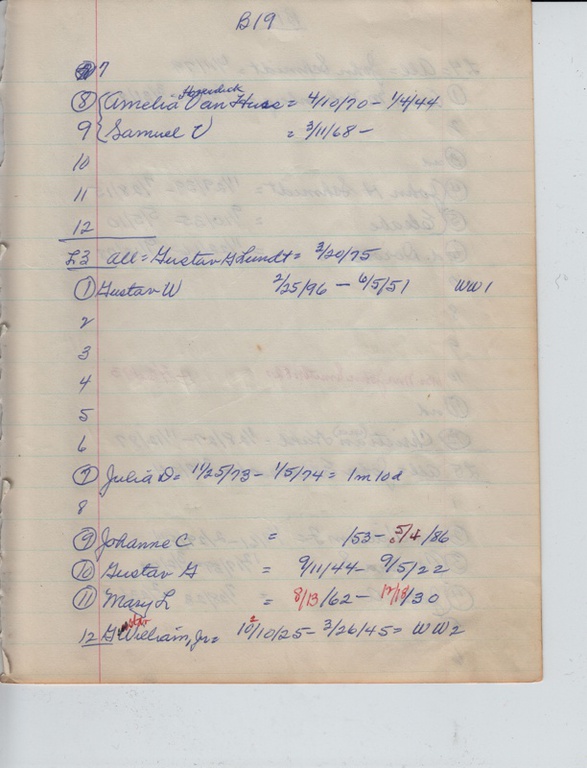 B19
7
8 { Amelia Van Huss = 4/10/70 - 1/4/44
9 { Samuel V = 3/11/68 -
10
11
12
L3 all = Gustav G Lundt = 3/20/75
1 Gustav W 2/25/96 - 6/5/51 WW1
2
3
4
5
6
7 Julia D = 11/25/73 - 1/5/74 = 1m 10d
8
9 Johanne C. = /53 - 5/4/86
10 Gustav G = 9/11/44 - 9/5/22
11 Mary L = 8/13/62 - 12/18/30
12 G William, Jr = 10/10/25 - 3/26/45 = WW2